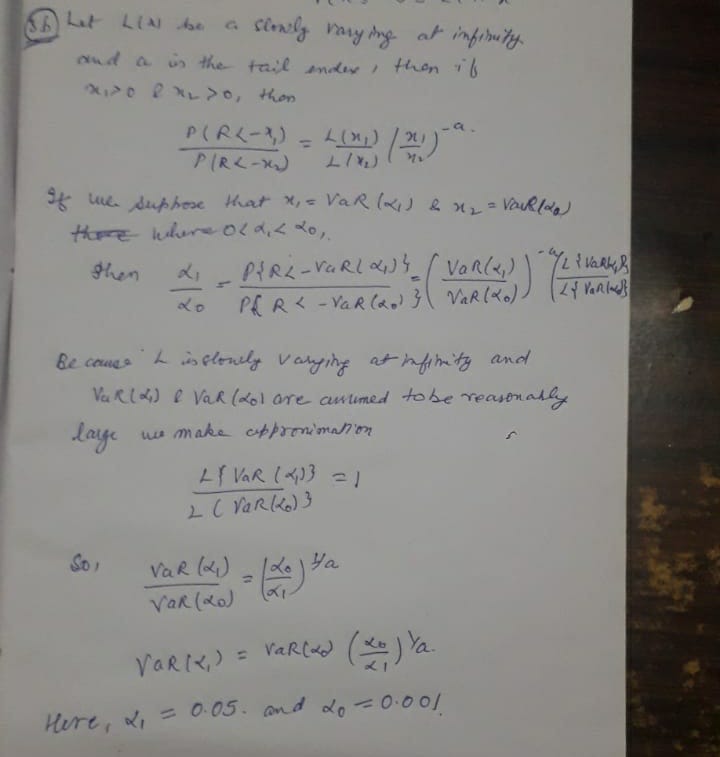 3.b) Let L(x) be a slowly varying at infinity
and a is the tail index, then if
x₁>0 & x₂>0, then
P(R<-x₁) / P(R<-x₂) = L(x₁) / L(x₂) (x₁/x₂)^-a.
If we suppose that x₁ = VaR(α₁) & x₂ = VaR(α₀)
where 0<α₁<α₀,
then α₁/α₀ = P{R<-VaR(α₁)} / P{R<-VaR(α₀)} = (VaR(α₁) / VaR(α₀))^-a (L{VaR(α₁)} / L{VaR(α₀)}
Because L is slowly varying at infinity and
VaR(α₁) & VaR(α₀) are assumed to be reasonably
large we make approximation
L{VaR(α₁)} / L(VaR(α₀)} = 1
So, VaR(α₁) / VaR(α₀) = (α₀/α₁)^1/a
VaR(α₁) = VaR(α₀) (α₀/α₁)^1/a.
Here, α₁ = 0.05. and α₀ = 0.001.